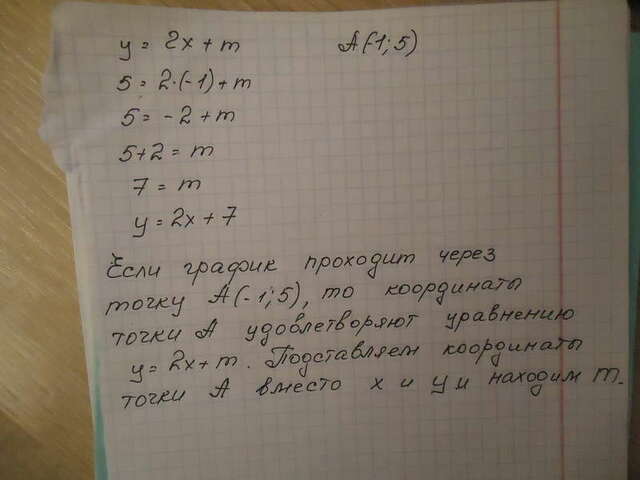 y = 2x + m A(-1; 5)
5 = 2·(-1) + m
5 = -2 + m
5+2 = m
7 = m
y = 2x + 7
Если график проходит через
точку A(-1; 5), то координаты
точки A удовлетворяют уравнению
y = 2x + m. Подставляем координаты
точки A вместо x и y и находим m.